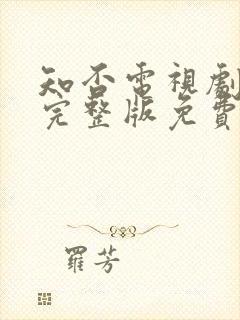 知否電視劇
完整版免費
羅芳